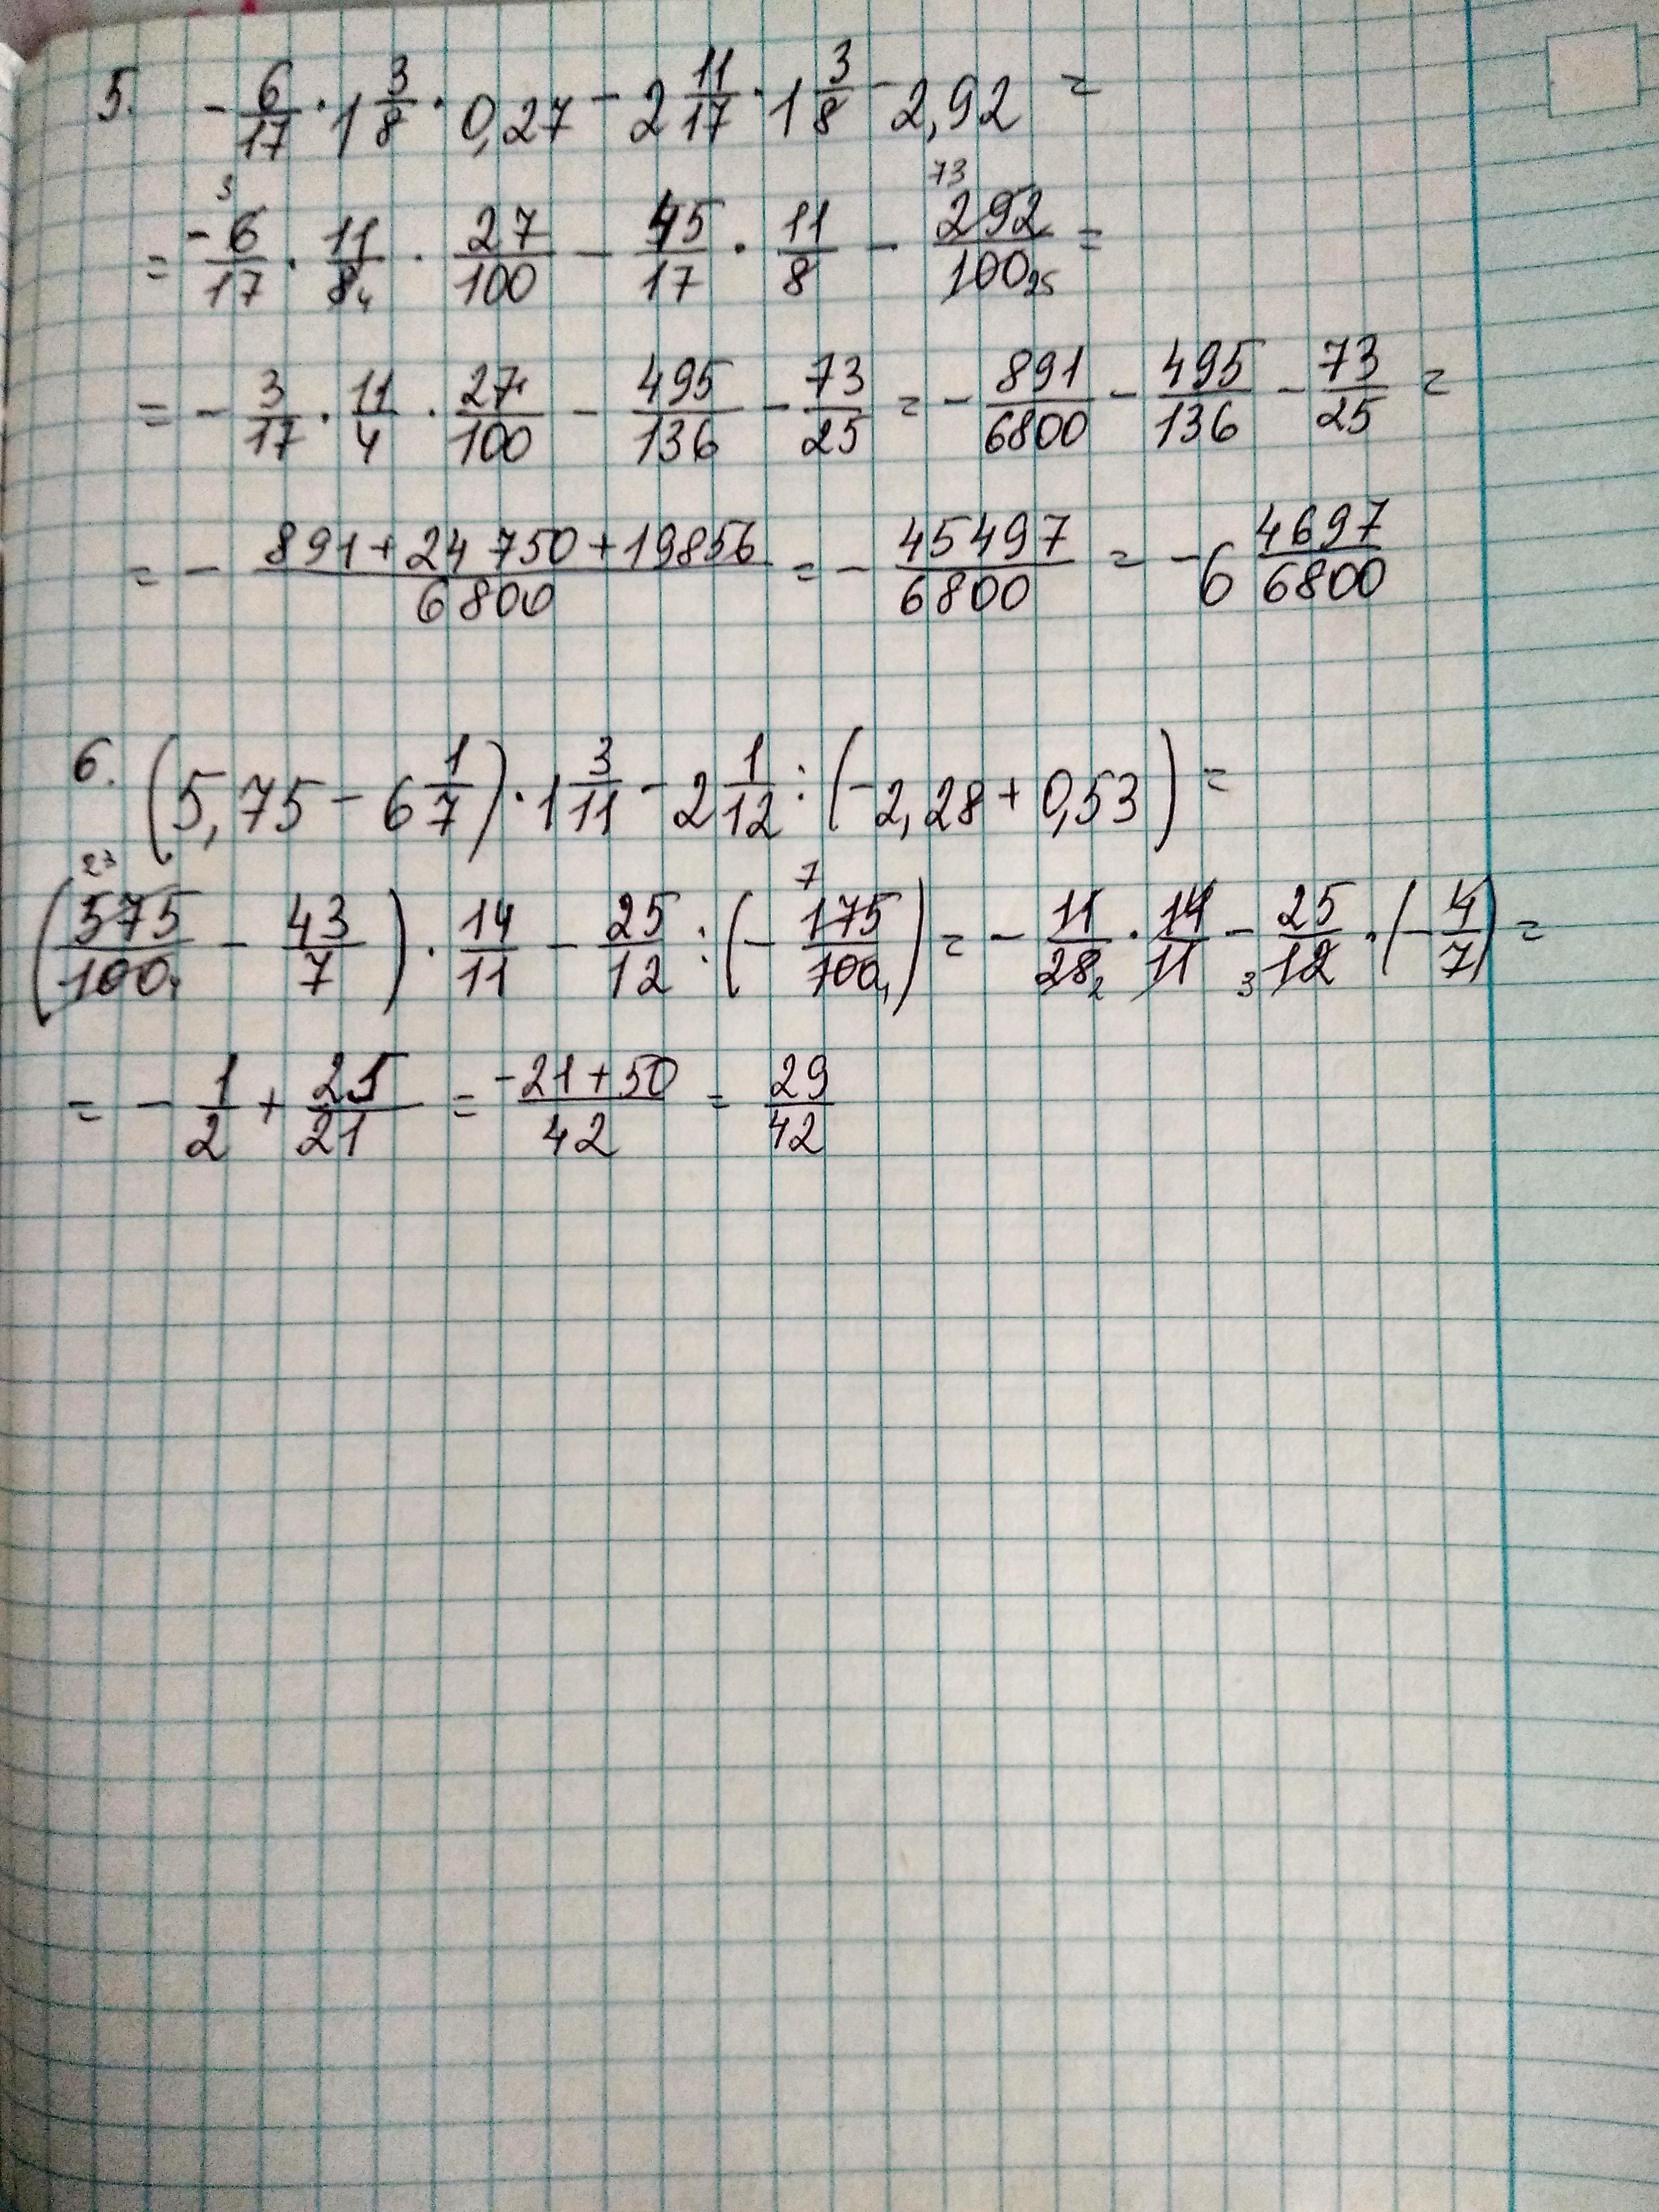 5. - 6/17 · 1 3/8 · 0,27 - 2 11/17 · 1 3/8 - 2,92 =
= -6/17 · 11/8 · 27/100 - 45/17 · 11/8 - 292/100 = (3, 4, 73, 25)
= - 3/17 · 11/4 · 27/100 - 495/136 - 73/25 = - 891/6800 - 495/136 - 73/25 =
= - (891 + 24 750 + 19856)/6800 = - 45497/6800 = -6 4697/6800
6. (5,75 - 6 1/7) · 1 3/11 - 2 1/12 : (-2,28 + 0,53) =
(575/100 - 43/7) · 14/11 - 25/12 : (- 175/100) = - 11/28 · 14/11 - 25/12 · (- 4/7) = (23, 4, 7, 4, 2, 3)
= - 1/2 + 25/21 = (-21 + 50)/42 = 29/42